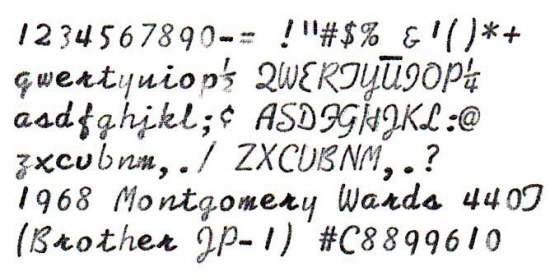 1234567890-= !"#$% &'()*+
qwertyuiop½ QWERTYUIOP¼
asdfghjkl;¢ ASDFGHJKL:@
zxcvbnm,./ ZXCVBNM,.?
1968 Montgomery Wards 440T
(Brother JP-1) #C8899610